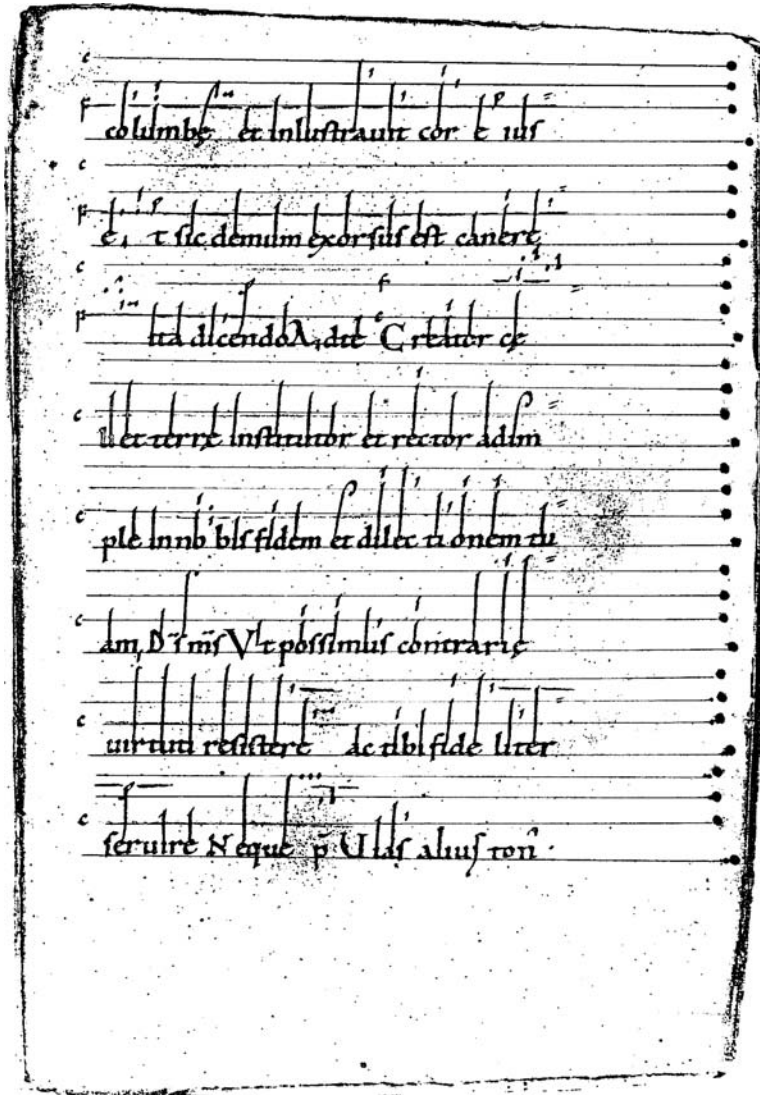 columbę et inlustrauit cor e ius
e, t sic demum exorsus est canere,
ita dicendo A, dte Creator cę
li et terrę institutor et rector adim
ple in nobis fidem et dilec ti onem tu
am, D̄s m̄s Vt possimus contrarię
uirtuti resistere ac tibi fide liter
seruire Neque p̄ U las alius ton̄.